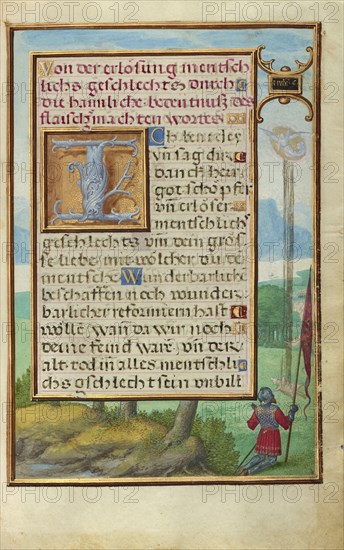 Von der erlösung mentsch
lichs geschlechts durch
die haimliche bedeutnuß des
flaisch machten wortes
Ich ben edey
vn sag dir
danck herr
got schöpfer
vn erlöser
mentschlichs
geschlechts vn dein gros
se liebe mit wolcher du de
mentsche Wunderbarliche
beschaffen noch wunder
barlicher reformiern hast
wölle, wan da wir noch
deine feind ware, vn der
alt tod in alles mentschli
chs gschlecht sein vnbilt